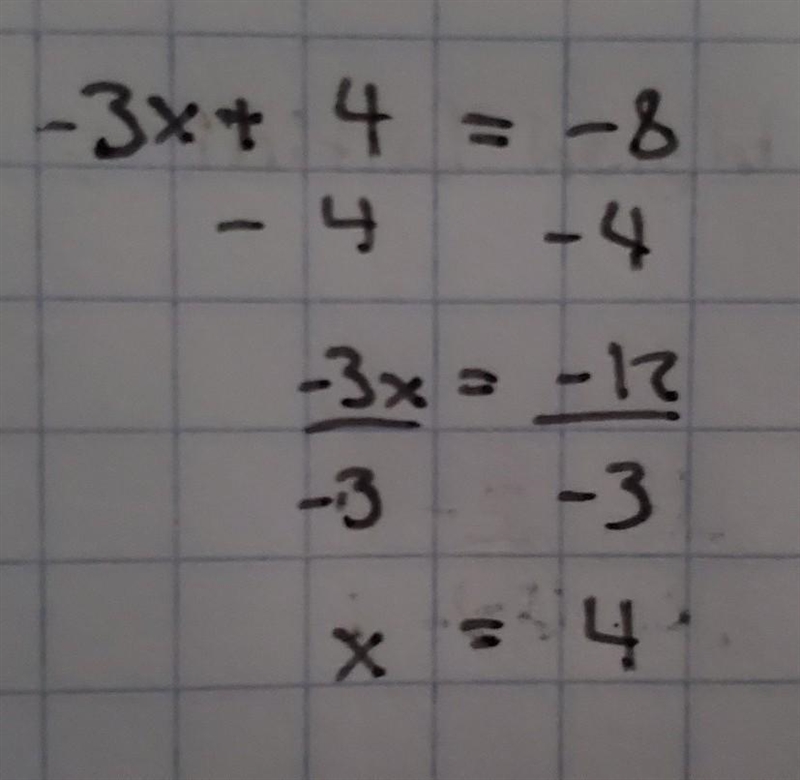 -3x + 4 = -8
- 4 -4
-3x = -12
-3 -3
x = 4